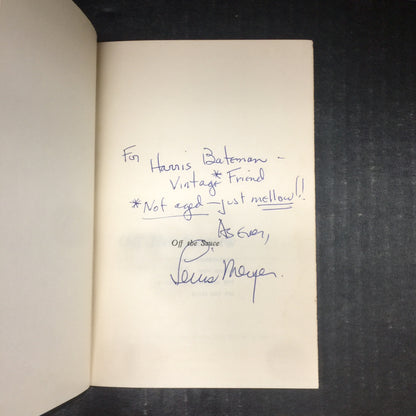 For Harris Bateman –
Vintage* Friend
*Not aged – just mellow!!
As ever,
Off the Sauce
Lewis Meyer.